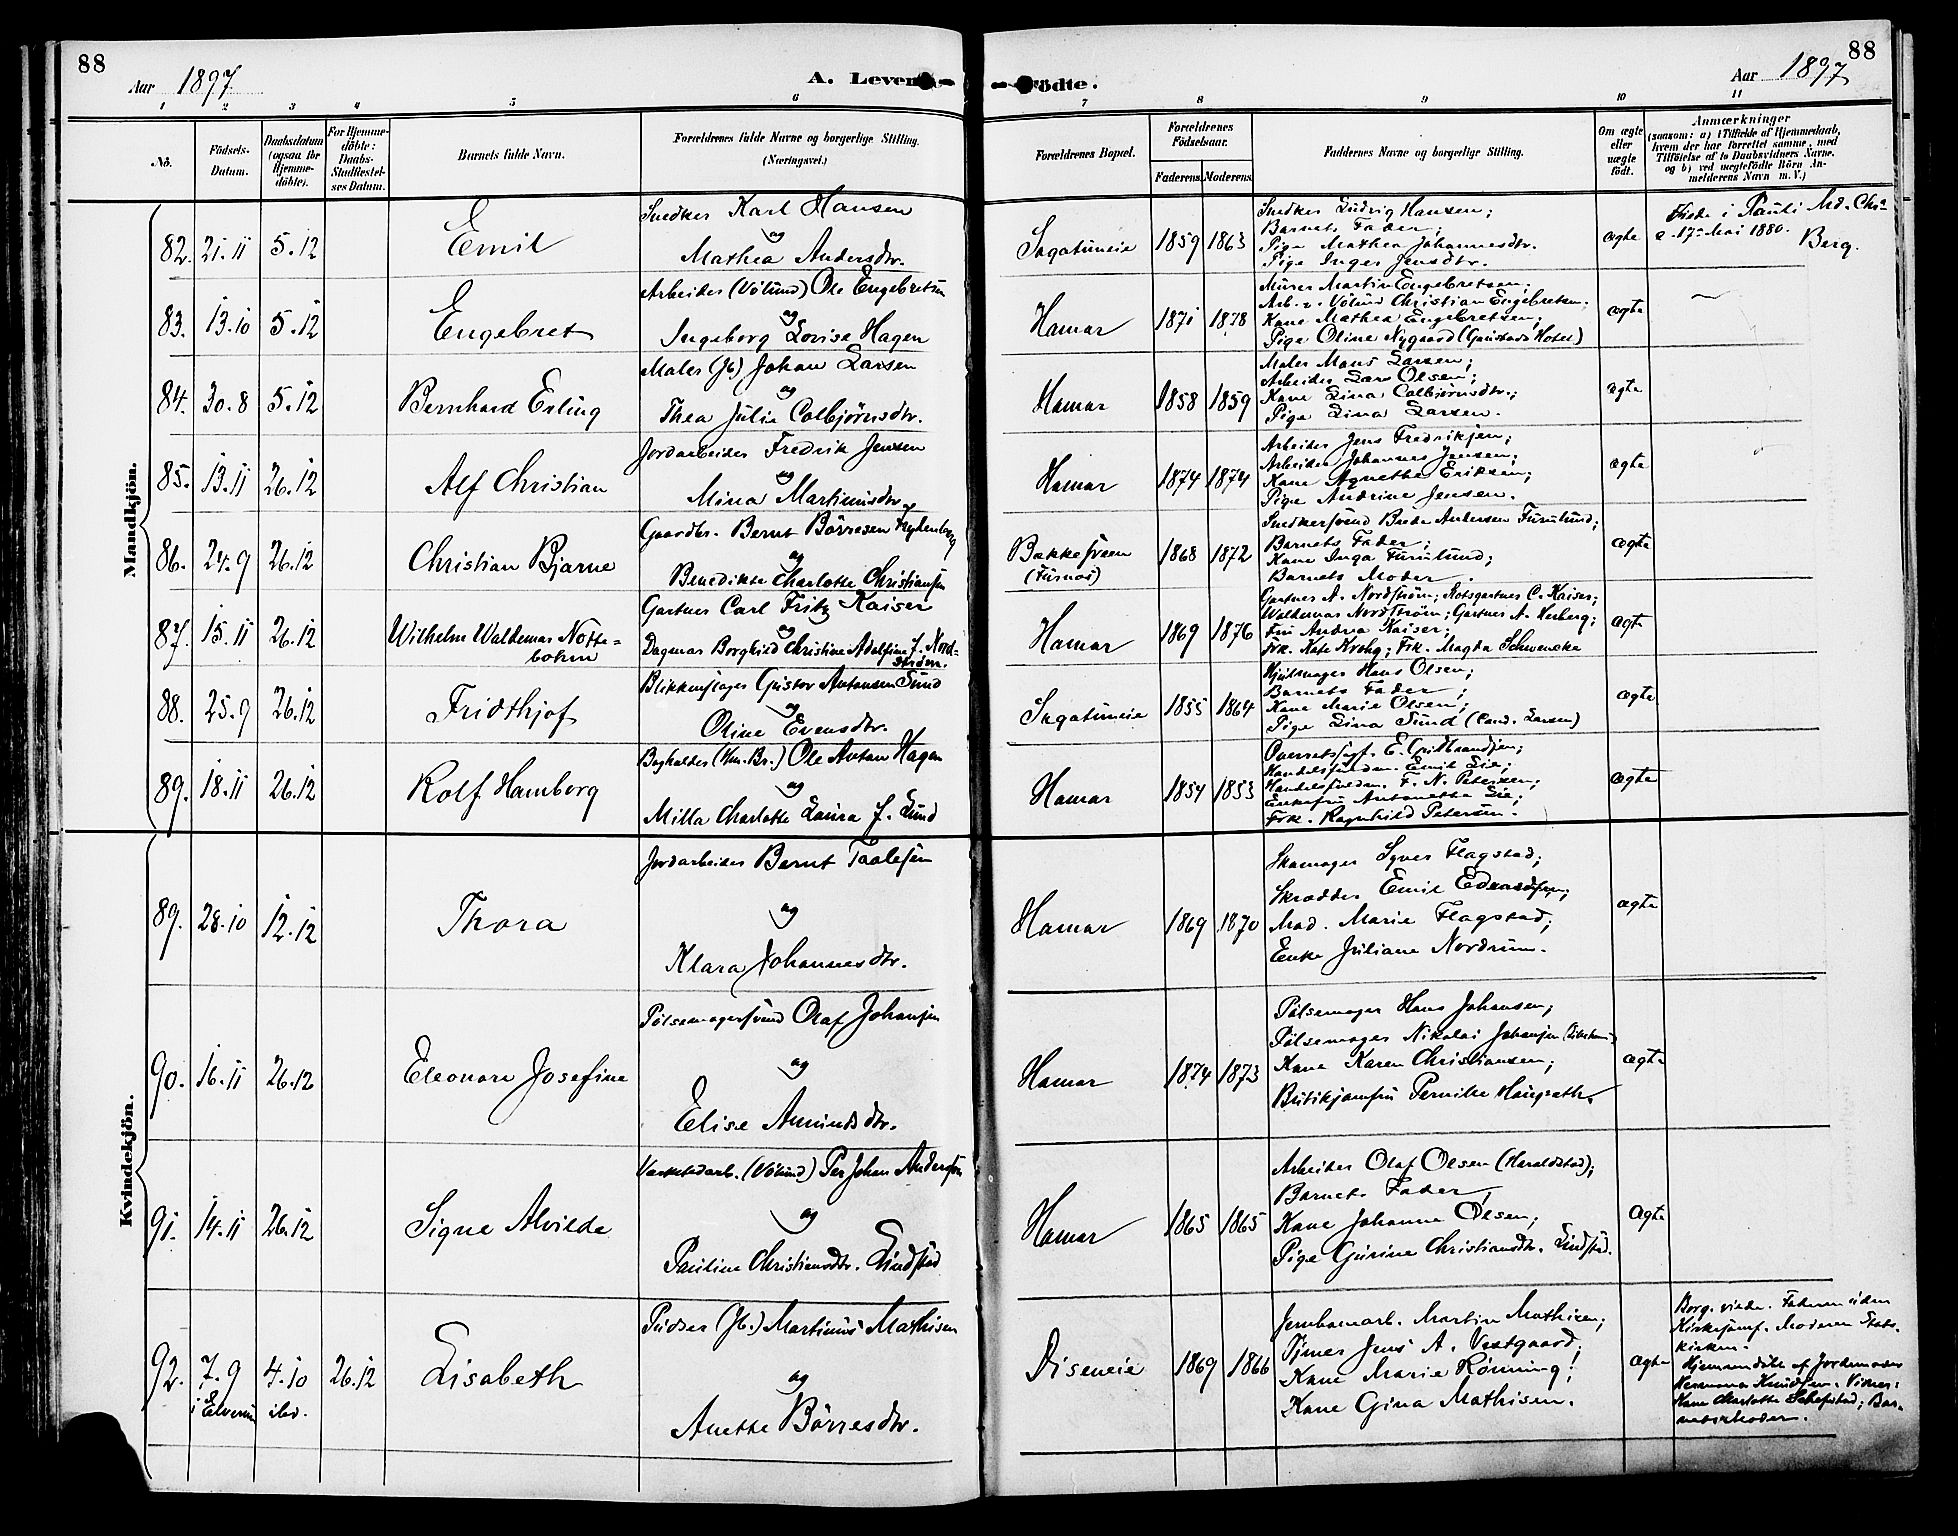 88
Aar 1897.
A. Levende
Födte.
Aar 1897
88
1 2 3 4 5 6 7 8 9 10 11
No.
Födsels-Datum.
Daabsdatum (ogsaa for Hjemmedöbte).
For Hjemmedöbte: Daabs-Stadfæstelses Datum.
Barnets fulde Navn.
Forældrenes fulde Navne og borgerlige Stilling. (Næringsvei.)
Forældrenes Bopæl.
Forældrenes Födselsaar.
Faderens. Moderens.
Faddernes Navne og borgerlige Stilling.
Om ægte eller uægte födt.
Anmærkninger
(saasom: a) i Tilfælde af Hjemmedaab, hvem der har forrettet samme, med Tilföielse af to Daabsvidners Navne. og b) ved uægtefödte Börn Anmelderens Navn m. V.)
Mandkjön.
82. 21.11 5.12 Emil
Snedker Karl Hansen
og
Mathea Andersdtr.
Sagatuneie 1859 1863
Snedker Ludvig Hansen;
Barnets Fader;
Pige Mathea Johannesdtr.
Pige Inger Jensdtr.
ægte
17de Mai 1880. Berg.
83. 13.10 5.12 Engebret
Arbeider (Vølund) Ole Engebretsen
og
Ingeborg Lovise Hagen
Hamar 1871 1878
Murer Martin Engebretsen;
Arb. v. Vølund Christian Engebretsen;
Kone Mathea Engebretsen;
Pige Oline Nygaard (Grustads Hotel)
ægte
84. 30.8 5.12 Bernhard Erling
Maler (Jb.) Johan Larsen
og
Thea Julie Colbjørnsdtr.
Hamar 1858 1859
Maler Mons Larsen;
Arbeider Lars Olsen;
Kone Lina Colbjørnsdtr.;
Pige Lina Larsen.
ægte
85. 13.11 26.12 Alf Christian
Jordarbeider Fredrik Jensen
og
Mina Martinusdtr.
Hamar 1874 1874
Arbeider Jens Fredriksen;
Arbeider Johannes Jensen;
Kone Agnethe Eriksen;
Pige Andrine Jensen.
ægte
86. 24.9 26.12 Christian Bjarne
Gaardbr. Bernt Börresen Frydenborg
og
Benedikte Charlotte Christiansen
Bakkesveen
(Furnæs)
1868 1872
Snedkersvend Brede Andersen Furulund;
Barnets Fader;
Kone Inga Furulund;
Barnets Moder.
ægte
87. 15.11 26.12 Wilhelm Waldemar Notte-
bohm
Gartner Carl Fritz Kaiser
og
Dagmar Borghild Christine Adolfine f. Nord-
ström.
Hamar 1869 1876
Gartner A. Nordström; Slotsgartner C. Kaiser;
Waldemar Nordström; Gartner A. Herberg;
Fru Andrea Kaiser;
Frk. Kate Krohg; Frk. Magda Schwencke
ægte
88. 25.9 26.12 Fridthjof
Blikkenslager Gustav Antonsen Sund
og
Oline Evensdtr.
Sagatuneie 1855 1864
Hjulmager Hans Olsen;
Barnets Fader;
Kone Marie Olsen;
Pige Lina Sund (Cand. Larsen)
ægte
89. 18.11 26.12 Rolf Hamborg
Bogholder (Hm. Br.) Ole Anton Hagen
og
Milla Charlotte Laura f. Lund
Hamar 1854 1853
Overretssagf. E. Guldbrandsen;
Handelsfuldm. Emil Lie;
Handelsfuldm. F. N. Petersen;
Enkefru Antonette Lie;
Frk. Ragnhild Petersen.
ægte
Kvindekjön.
89. 28.10 12.12 Thora
Jordarbeider Bernt Taalesen
og
Klara Johannesdtr.
Hamar 1869 1870
Skomager Syver Flagstad;
Skrædder Emil Edvardsen;
Mad. Marie Flagstad;
Enke Juliane Nordrum.
ægte
90. 16.11 26.12 Eleonore Josefine
Pölsemagersvend Olaf Johansen
og
Elise Amundsdtr.
Hamar 1874 1873
Pölsemager Hans Johansen;
Pölsemager Nikolai Johansen
Kone Karen Christiansen;
Butikjomfru Pernille Haugseth.
ægte
91. 14.11 26.12 Signe Alvilde
Værkstedarb. (Vølund) Per Johan Andersen
og
Pauline Christiansdtr. Lindstad
Hamar 1865 1865
Arbeider Olaf Olsen (Haraldstad);
Barnets Fader;
Kone Johanne Olsen;
Pige Gurine Christiansdtr. Lindstad.
ægte
92. 7.9 4.10 26.12 Lisabeth
i Elverum ibd.
Pudser (Jb.) Martinus Mathisen
og
Anette Börresdtr.
Diseneie 1869 1866
Jernbanearb. Martin Mathisen;
Tjener Jens A. Vestgaard;
Kone Marie Rönning;
Kone Gina Mathisen.
ægte
Borg. viede. Faderen uden
Kirkesamf. Moderen Stats-
kirken.
Hjemmedöbt af Jordemoder
Hermana Knudsen. Vidner:
Kone Charlotte Schefstad; Bar-
nets Moder.